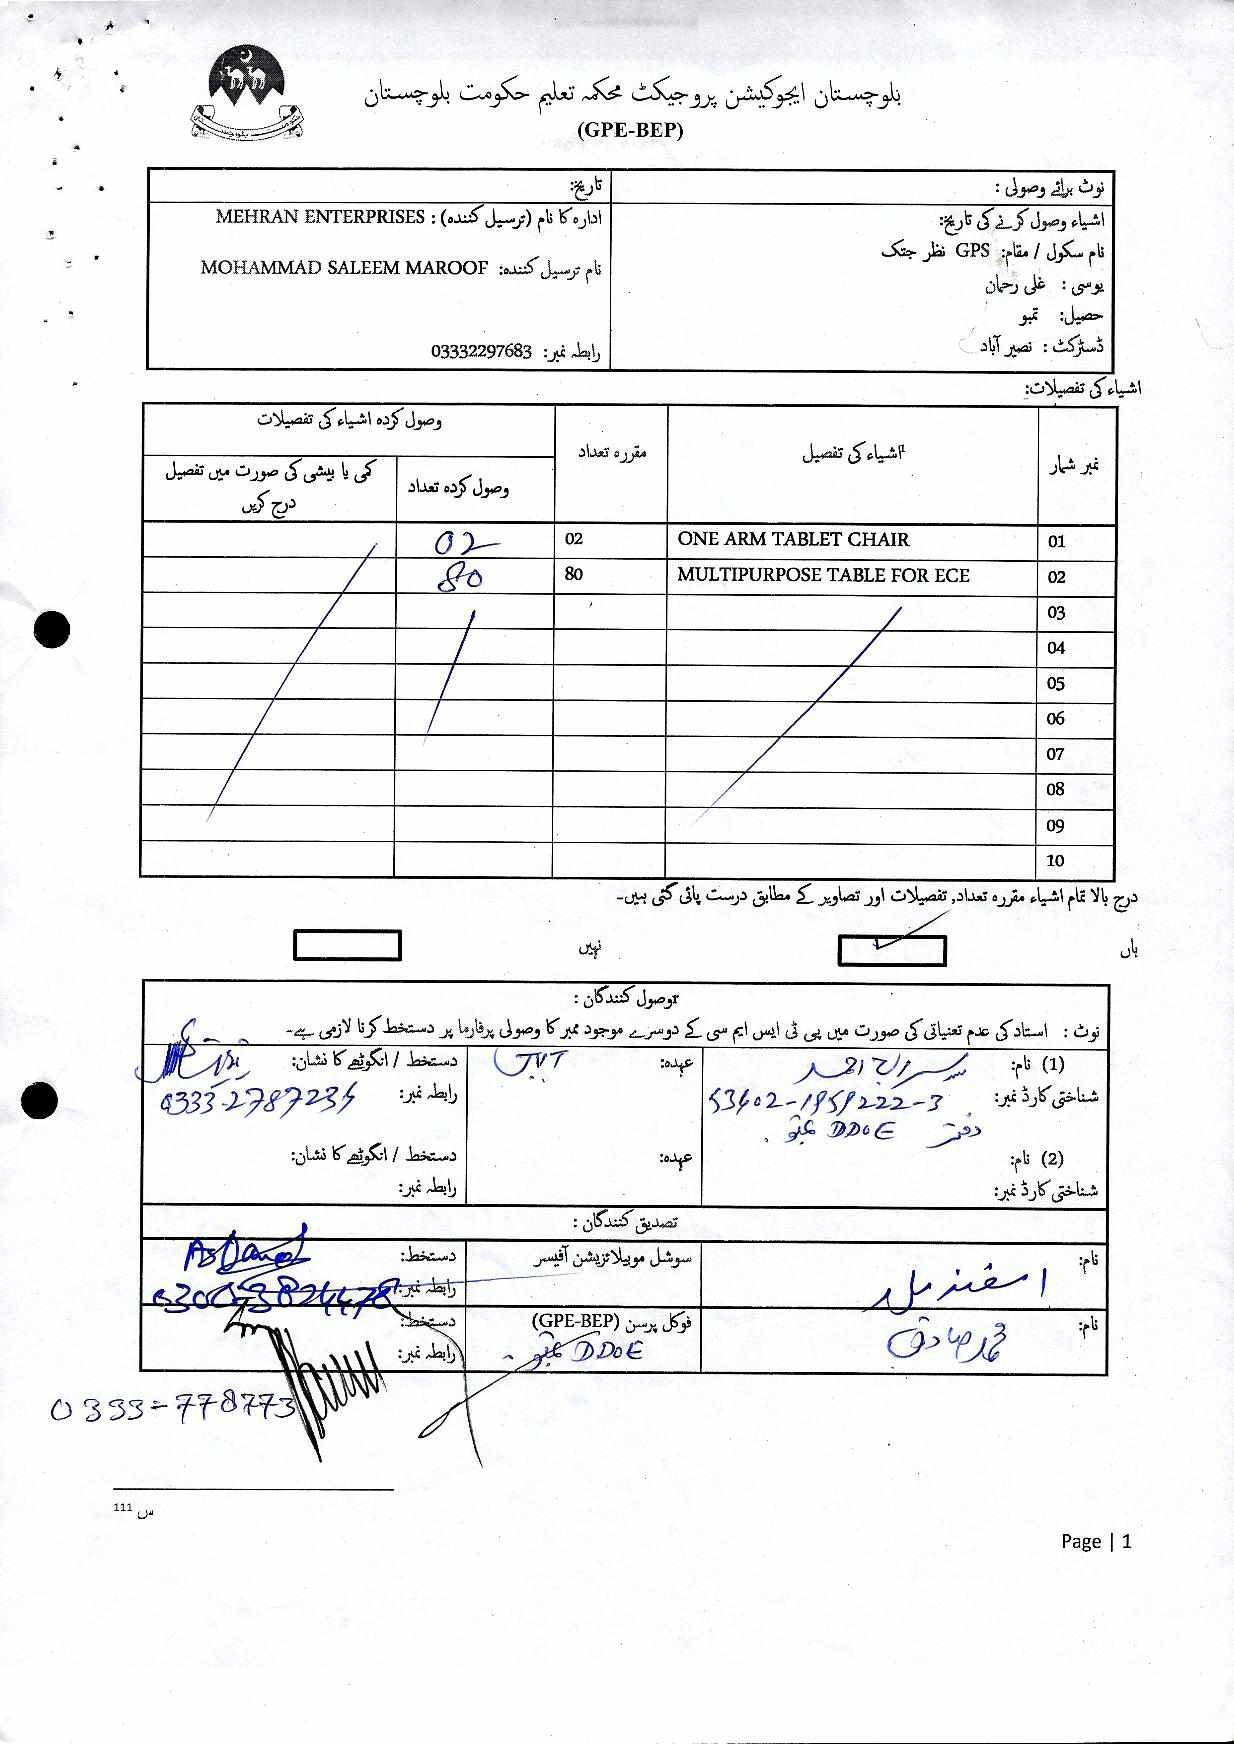 بلوچستان ایجوکیشن پروجیکٹ محکمہ تعلیم حکومت بلوچستان
(GPE-BEP)
نوٹ برائے وصولی :
تاریخ:
اشیاء وصول کرنے کی تاریخ:
نام سکول / مقام: GPS نظر جتک
یوسی : علی رحمان
حصیل: تمبو
ڈسٹرکٹ : نصیر آباد
ادارہ کا نام (ترسیل کنندہ) : MEHRAN ENTERPRISES
نام ترسیل کنندہ: MOHAMMAD SALEEM MAROOF
رابطہ نمبر: 03332297683
اشیاء کی تفصیلات:
نمبر شمار
اشیاء کی تفصیل
مقررہ تعداد
وصول کردہ اشیاء کی تفصیلات
وصول کردہ تعداد
کمی یا بیشی کی صورت میں تفصیل درج کریں
01 ONE ARM TABLET CHAIR 02 02
02 MULTIPURPOSE TABLE FOR ECE 80 80
03
04
05
06
07
08
09
10
درج بالا تمام اشیاء مقررہ تعداد, تفصیلات اور تصاویر کے مطابق درست پائی گئی ہیں۔
ہاں
نہیں
وصول کنندگان :
نوٹ : استاد کی عدم تعنیاتی کی صورت میں پی ٹی ایس ایم سی کے دوسرے موجود ممبر کا وصولی پرفارما پر دستخط کرنا لازمی ہے۔
(1) نام: سراج احمد
عہدہ: JVT
دستخط / انگوٹھے کا نشان:
شناختی کارڈ نمبر: 53402-1959222-3
رابطہ نمبر: 0333-2787234
دفتر DDOE تمبو
(2) نام:
عہدہ:
دستخط / انگوٹھے کا نشان:
شناختی کارڈ نمبر:
رابطہ نمبر:
تصدیق کنندگان :
نام: اسفند
سوشل موبیلائزیشن آفیسر
دستخط:
رابطہ نمبر: 0300-3824478
نام: محمد صادق
فوکل پرسن (GPE-BEP)
DDOE تمبو
دستخط:
رابطہ نمبر:
0333-778773
111 س
Page | 1